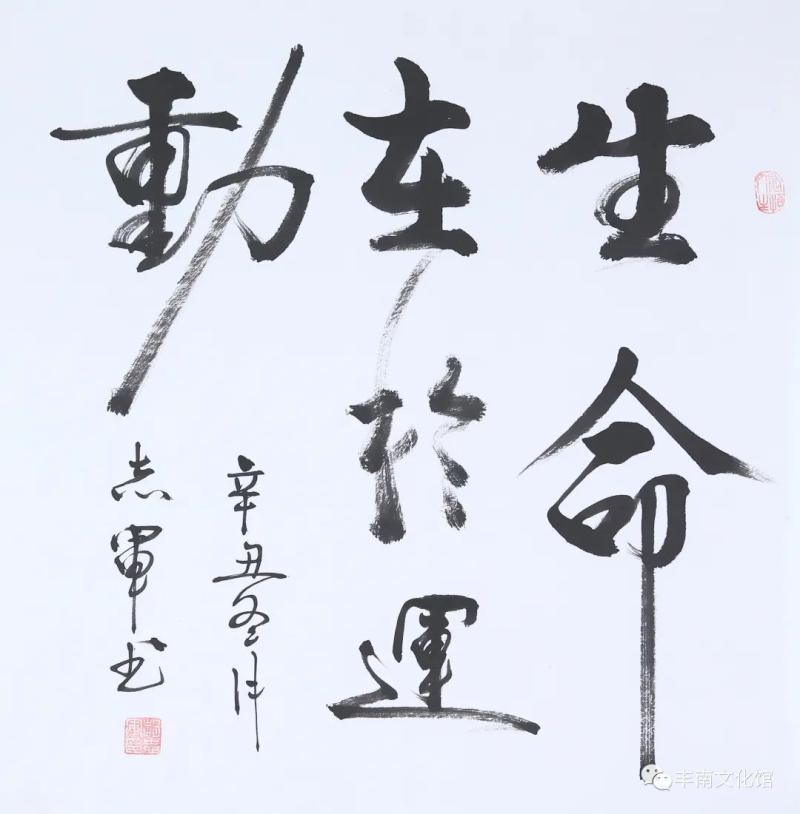 生命
在於運
動
辛丑冬月
志軍书
丰南文化馆